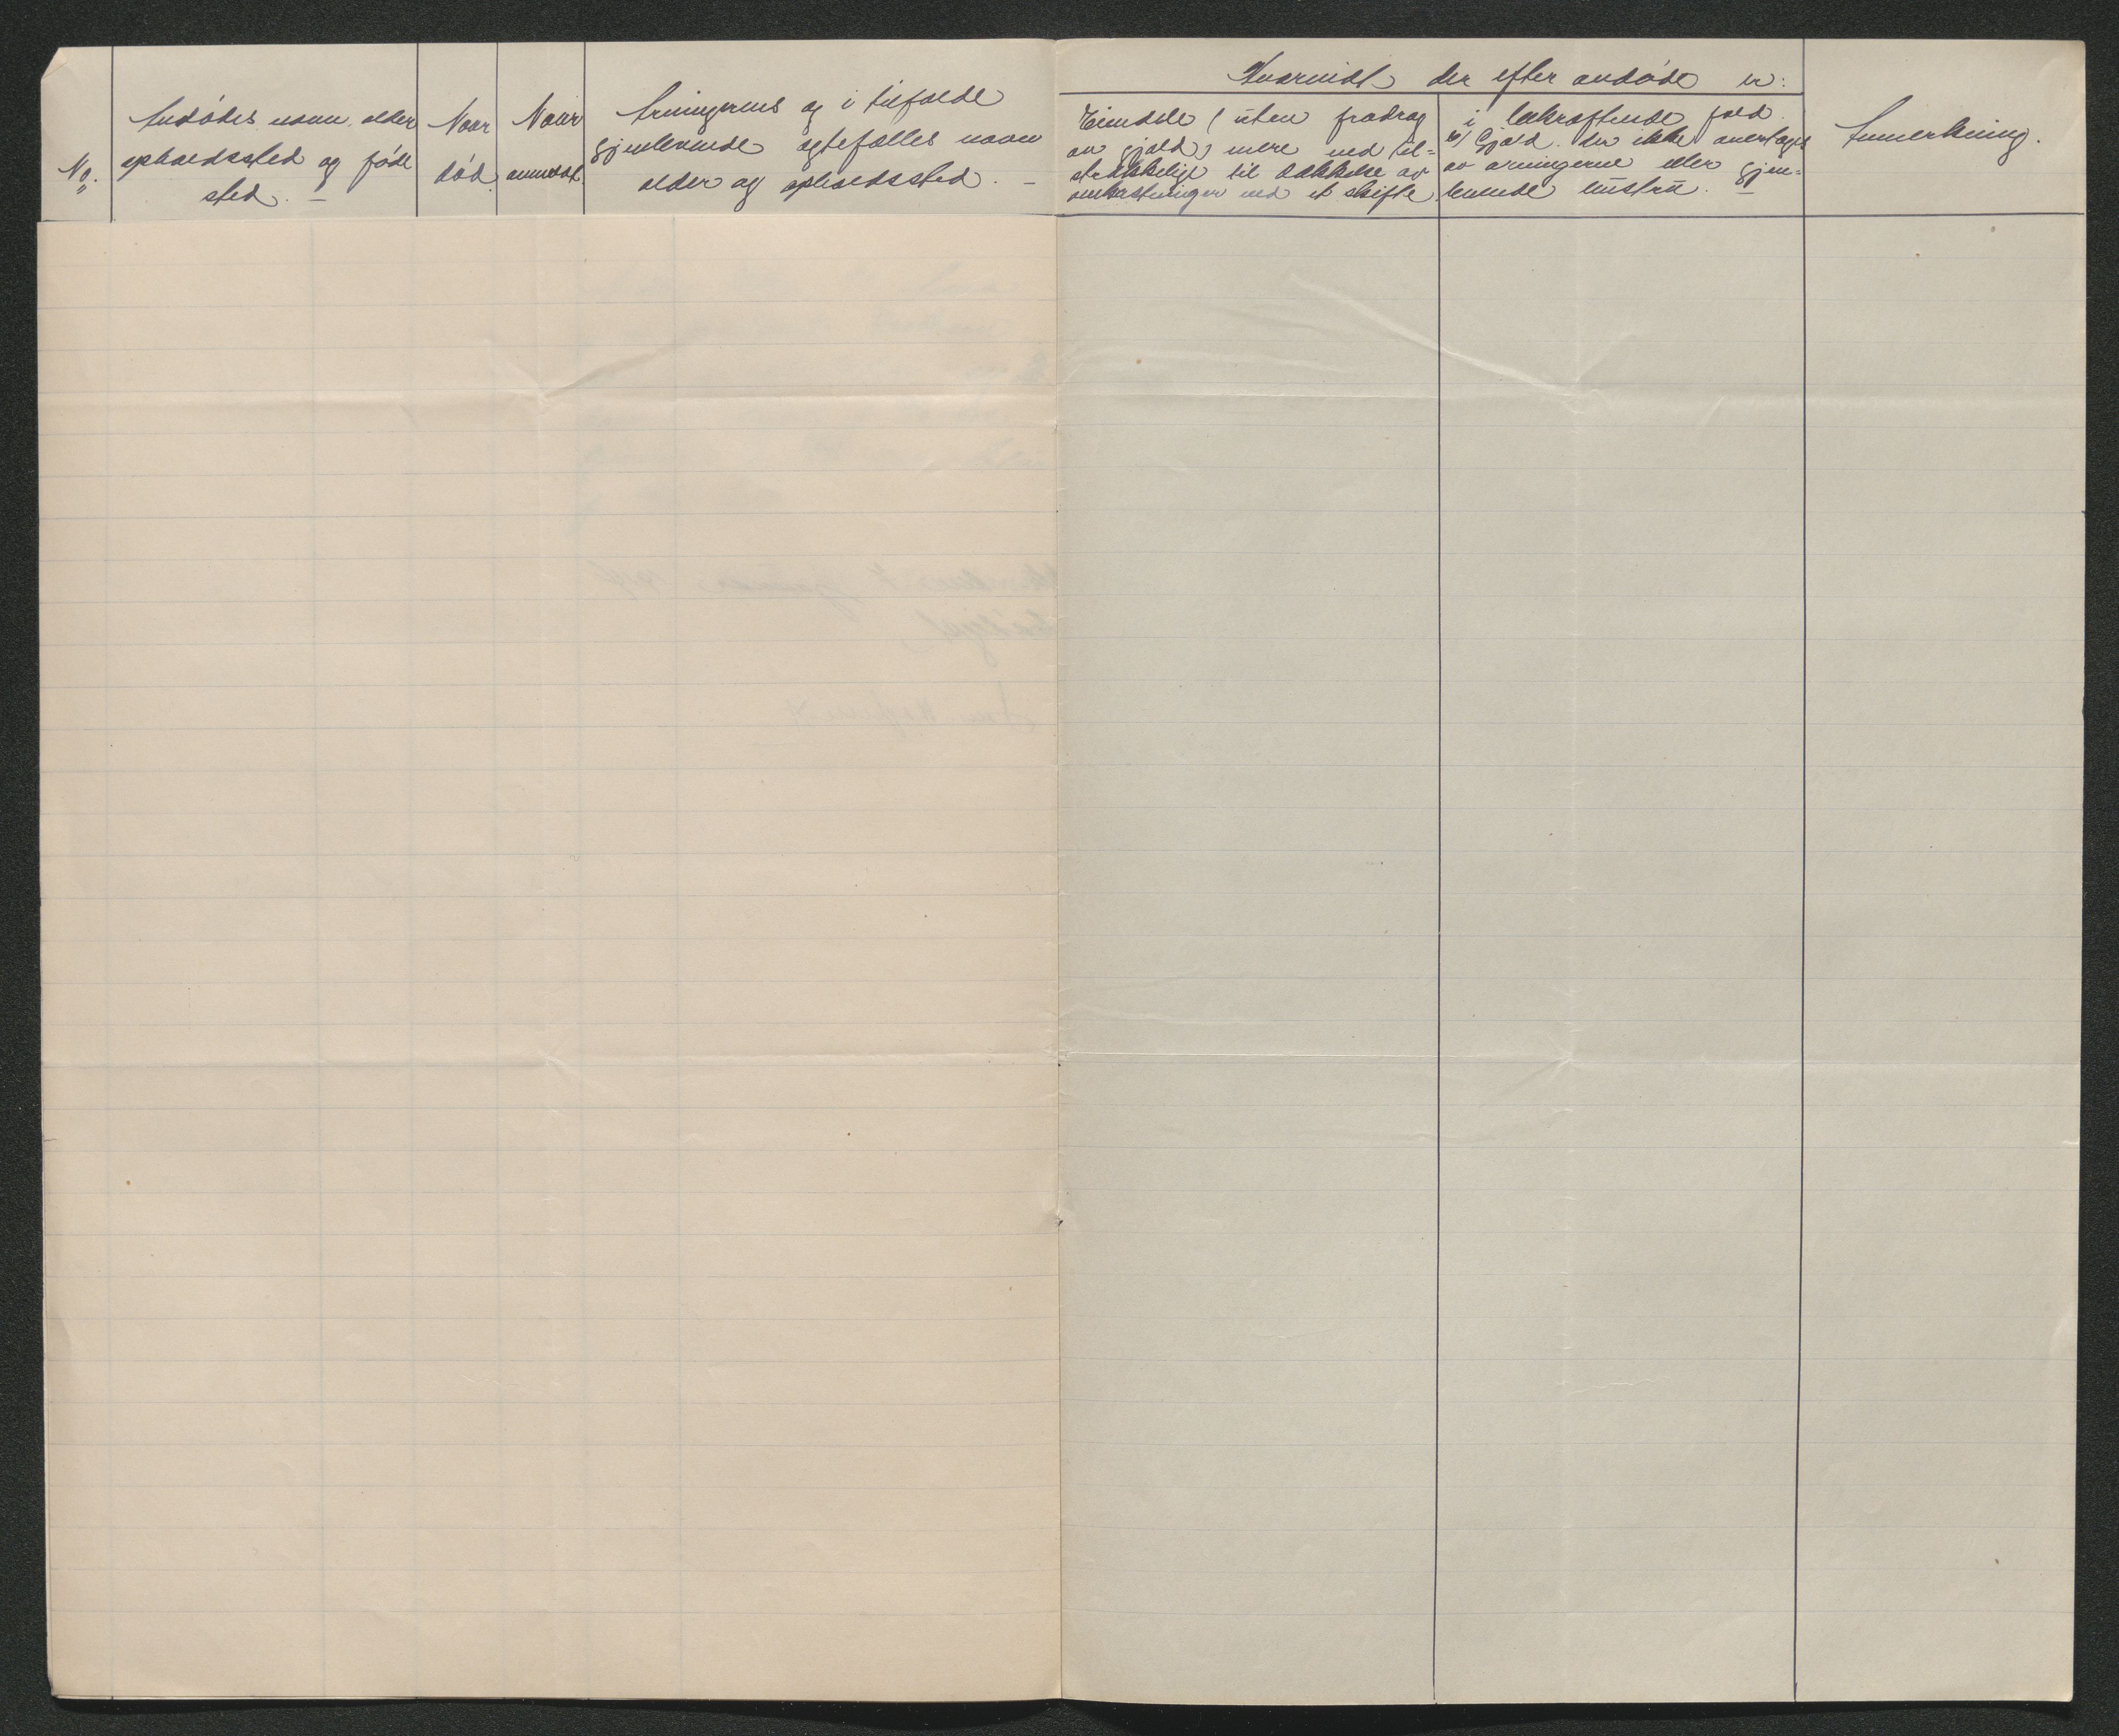 No.
Avdødes navn, alder
opholdssted og føde
sted. –
Naar
død.
Naar
anmeldt.
Arvingernes og i tilfælde
gjenlevende egtefælles navn
alder og opholdssted. –
Hvorvidt der efter avdøde er:
Eiendele (uten fradrag
av gjæld) mere end til-
strækkelige til dækkelse av
omkostninger ved et skifte
i bekræftende fald.
b) Gjæld. der ikke overtages
av arvingerne eller gjen-
levende hustru. –
Anmerkning.